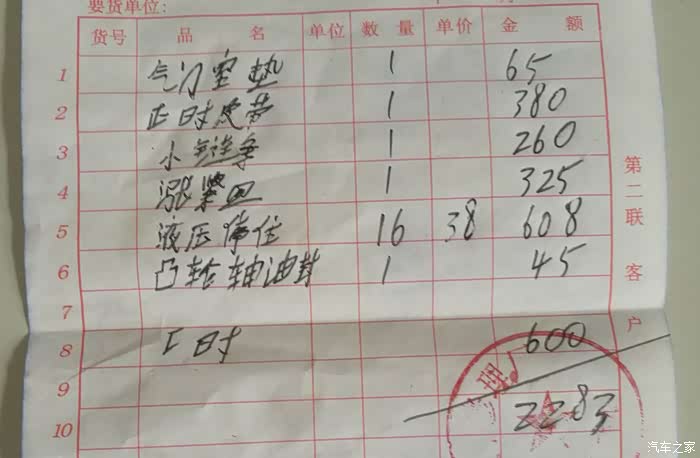 要货单位:
货号 品 名 单位 数 量 单价 金 额
1 气门室垫 1 65
2 正时皮带 1 380
3 小 1 260
4 涨紧 1 325
5 液压停住 16 38 608
6 凸轮轴油封 1 45
7
8 正时 600
9
10 2283
第二联 客户
理
汽车之家